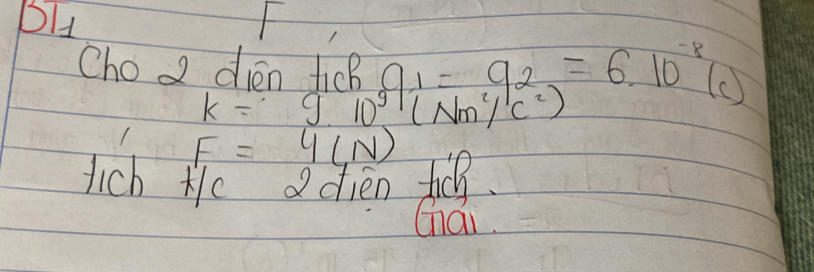 BT1 F
Cho 2 điện tích q1 = q2 = 6.10⁻⁸ (C)
k = 9.10⁹ (Nm²/C²)
F = 4 (N)
tích k/c 2 điện tích.
Giải.